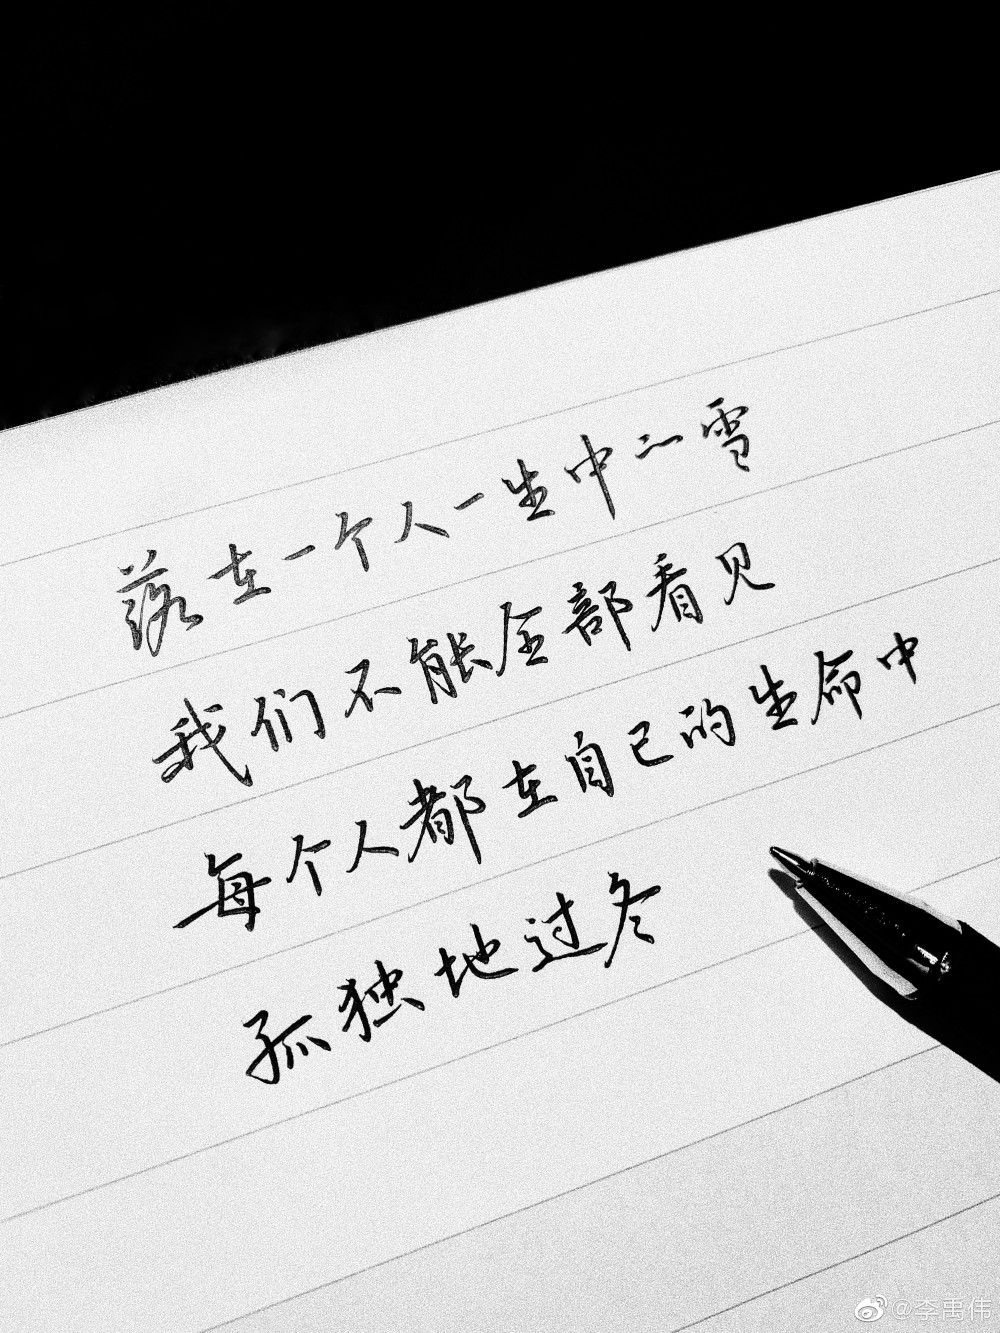 落在一个人一生中的雪
我们不能全部看见
每个人都在自己的生命中
孤独地过冬
@李禹伟